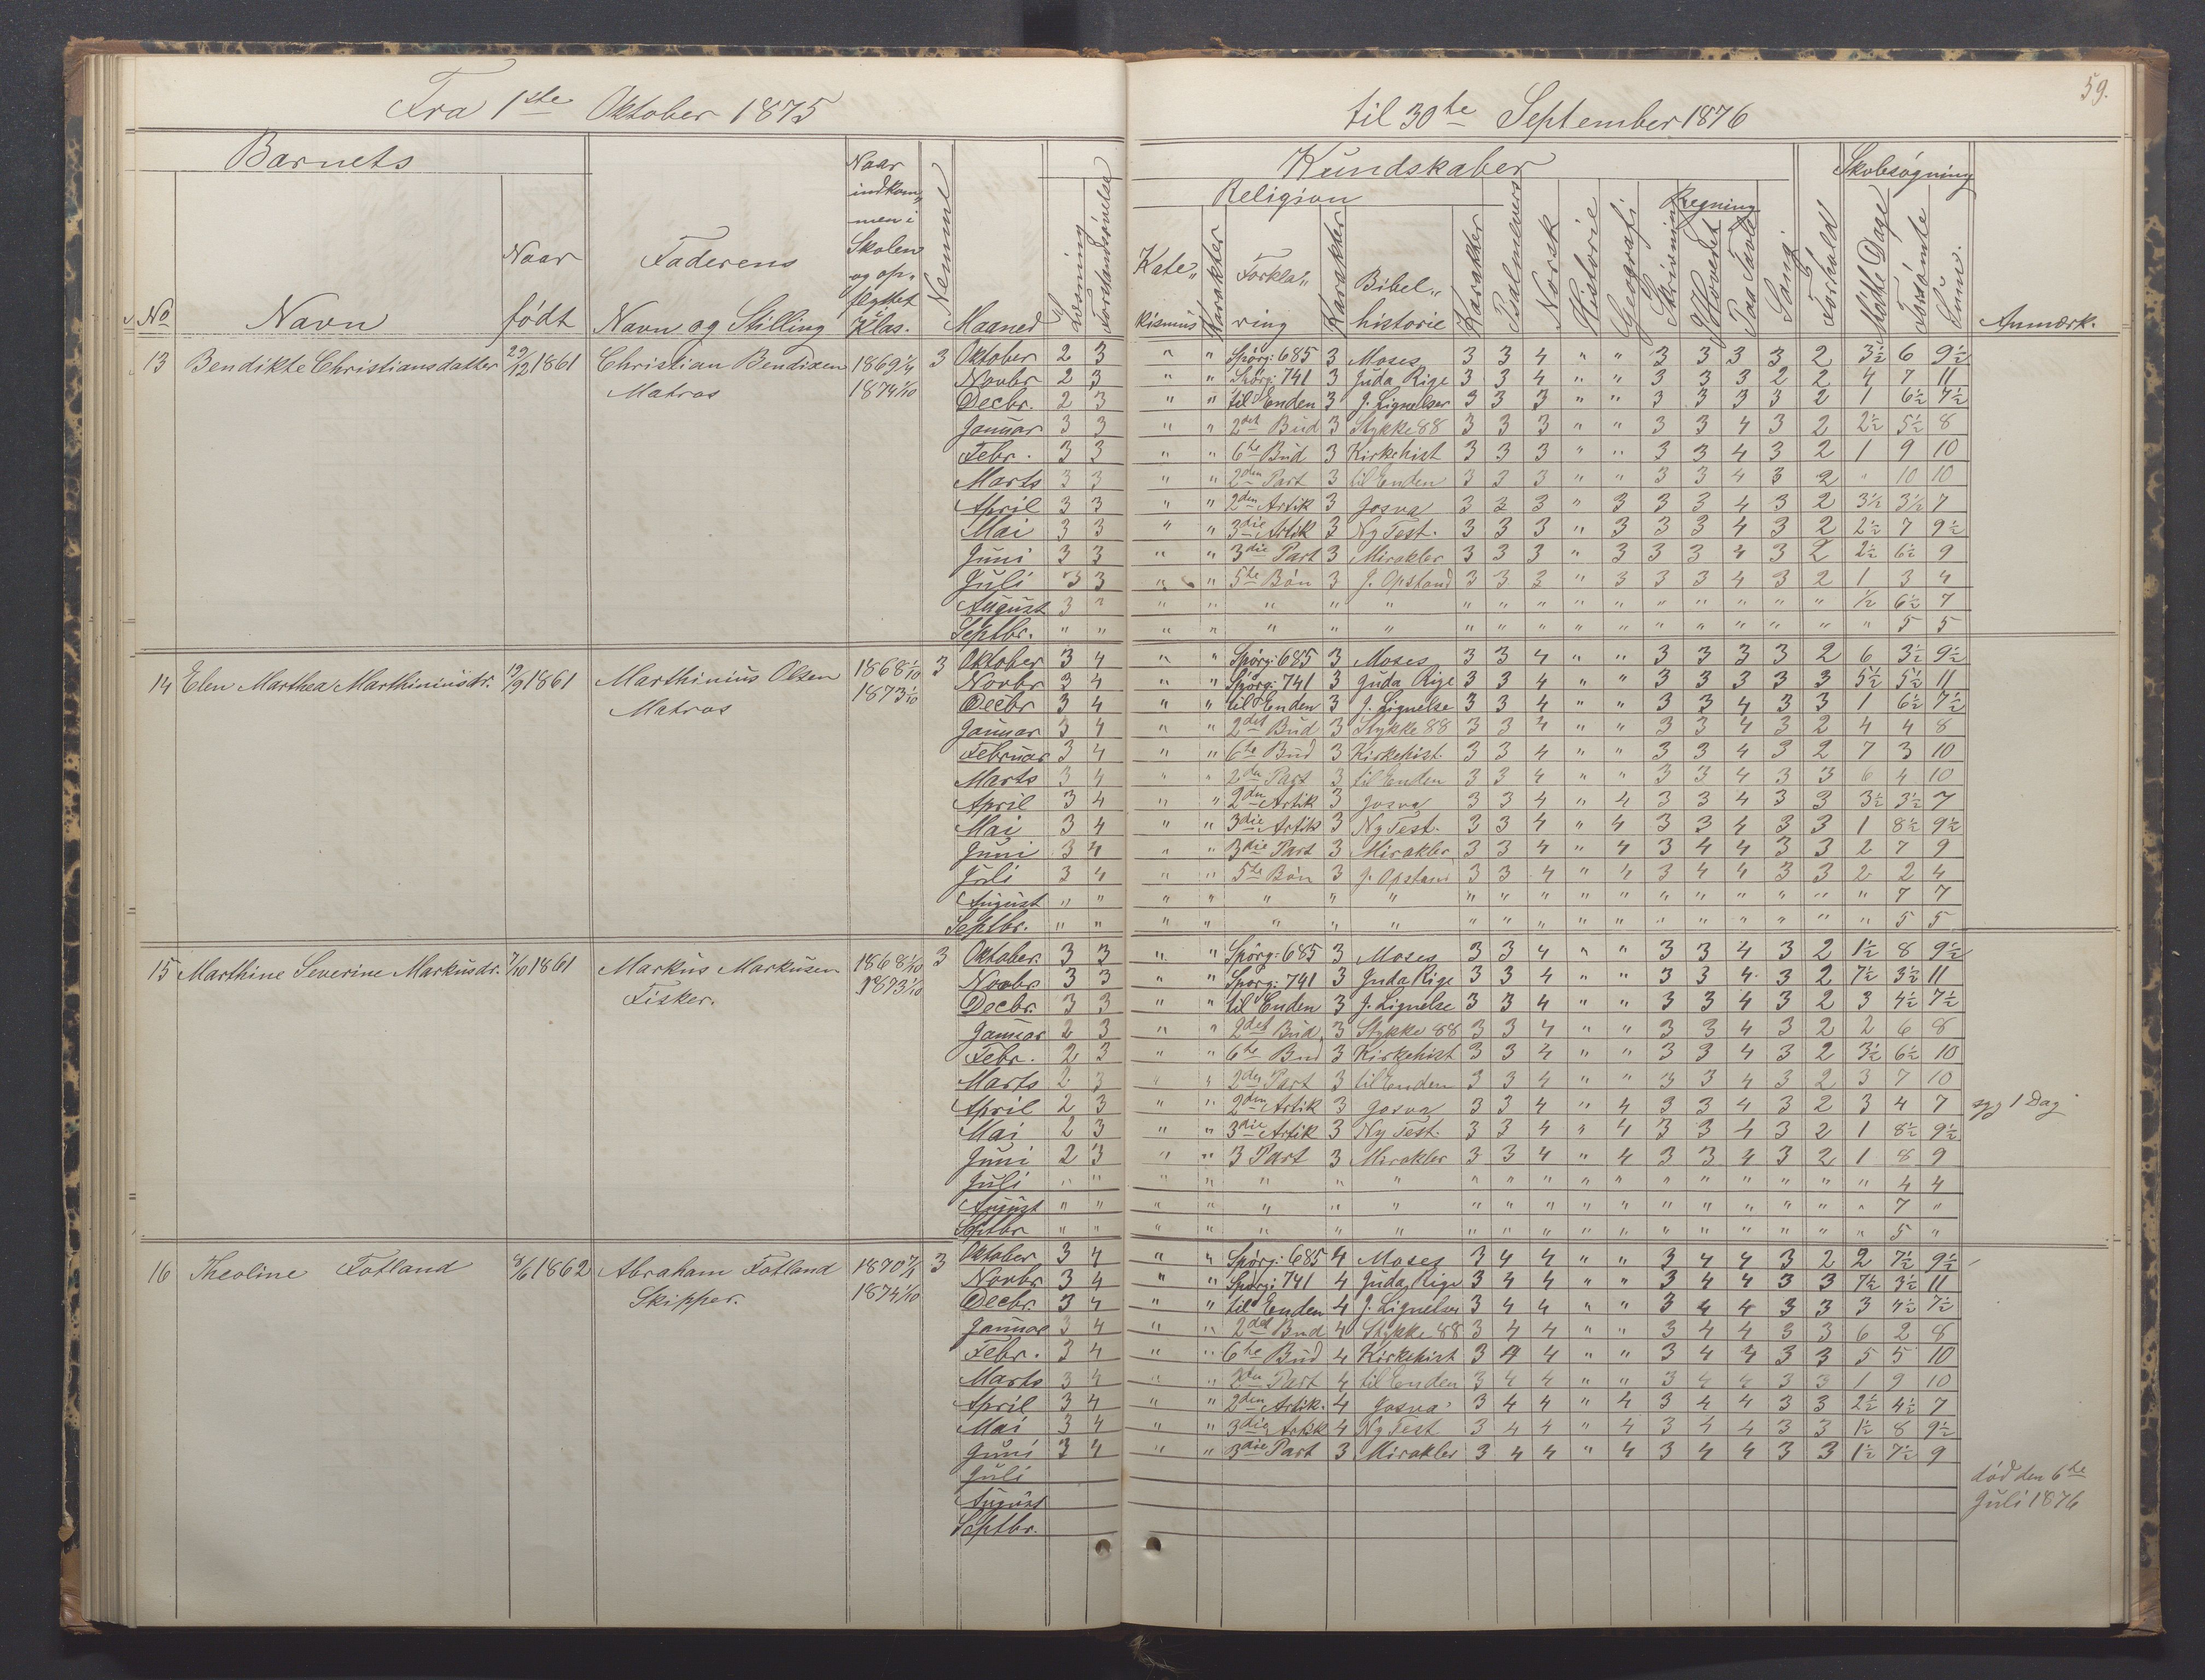 59.
Fra 1ste Oktober 1875 til 30te September 1876
Barnets Kundskaber Skolesøgning
Religion Regning
No Navn Naar født Faderens Navn og Stilling Naar indkommen i Skolen og opflyttet Klas. Nemme Maaned Læsning Forstandsøvelse Katekismus Karakter Forklaring Karakter Bibelhistorie Karakter Psalmevers Norsk Historie Geografi Skrivning I Hovedet Paa Tavle Sang Forhold Mødte Dage Forsømte Sum. Anmærk.
13 Bendikte Christiansdatter 29/12 1861 Christian Bendixen 1869 1/4 3 Oktober 2 3 " " Spörg: 685 3 Moses 3 3 4 " " 3 3 3 3 2 3½ 6 9½
Matros 1874 1/10 Novbr 2 3 " " Spörg: 741 3 Juda Rige 3 3 4 " " 3 3 3 2 2 4 7 11
Decbr. 2 3 " " til Enden 3 J. Lignelser 3 3 3 " " 3 3 3 3 2 1 6½ 7½
Januar 3 3 " " 2det Bud 3 Stykke 88 3 3 3 " " 3 3 4 3 2 2½ 5½ 8
Febr. 3 3 " " 6te Bud 3 Kirkehist 3 3 3 " " 3 3 4 3 2 1 9 10
Marts 3 3 " " 2den Part 3 til Enden 3 3 3 " " 3 3 4 3 2 " 10 10
April 3 3 " " 2den Artik 3 Josva 3 3 3 " 3 3 3 4 3 2 3½ 3½ 7
Mai 3 3 " " 3die Artik 3 Ny Test. 3 3 3 " 3 3 3 4 3 2 2½ 7 9½
Juni 3 3 " " 3die Part 3 Mirakler 3 3 3 " 3 3 3 4 3 2 2½ 6½ 9
Juli 3 3 " " 5te Bön 3 J. Opstand 3 3 3 " 3 3 3 4 3 2 1 3 4
August 3 " " " " " " " " " " " " " " " " ½ 6½ 7
Septbr. " " " " " " " " " " " " " " " " " " 5 5
14 Elen Marthea Marthiniusdr. 19/9 1861 Marthinius Olsen 1868 1/10 3 Oktober 3 4 " " Spörg: 685 3 Moses 3 3 4 " " 3 3 3 3 2 6 3½ 9½
Matros 1873 1/10 Novbr 3 4 " " Spörg: 741 3 Juda Rige 3 3 4 " " 3 3 3 3 3 5½ 5½ 11
Decbr 3 4 " " til Enden 3 J. Lignelse 3 3 4 " " 3 3 4 3 3 1 6½ 7½
Januar 3 4 " " 2det Bud 3 Stykke 88 3 3 4 " " 3 3 4 3 2 4 4 8
Februar 3 4 " " 6te Bud 3 Kirkehist. 3 3 4 " " 3 3 4 3 2 7 3 10
Marts 3 4 " " 2den Part 3 til Enden 3 3 4 " " 3 3 4 3 3 6 4 10
April 3 4 " " 2den Artik 3 Josva 3 3 4 " 4 3 3 4 3 3 3½ 3½ 7
Mai 3 4 " " 3die Artik 3 Ny Test. 3 3 4 " 4 3 3 4 3 3 1 8½ 9½
Juni 3 4 " " 3die Part 3 Mirakler 3 3 4 " 4 3 4 4 3 3 2 7 9
Juli 3 4 " " 5te Bön 3 J. Opstand 3 3 4 " 4 3 4 4 3 3 2 2 4
August " " " " " " " " " " " " " " " " " " 7 7
Septbr. " " " " " " " " " " " " " " " " " " 5 5
15 Marthine Severine Markusdr. 7/10 1861 Markus Markusen 1868 1/10 3 Oktober. 3 3 " " Spörg: 685 3 Moses 3 3 4 " " 3 3 4 3 2 1½ 8 9½
Fisker. 1873 1/10 Novbr 3 3 " " Spörg: 741 3 Juda Rige 3 3 4 " " 3 3 4 3 2 7½ 3½ 11
Decbr. 3 3 " " til Enden 3 J. Lignelse 3 3 4 " " 3 3 4 3 2 3 4½ 7½
Januar 2 3 " " 2det Bud 3 Stykke 88 3 3 4 " " 3 3 4 3 2 2 6 8
Febr. 2 3 " " 6te Bud 3 Kirkehist 3 3 4 " " 3 3 4 3 2 3½ 6½ 10
Marts 2 3 " " 2den Part 3 til Enden 3 3 4 " " 3 3 4 3 2 3 7 10
April 2 3 " " 2den Artik 3 Josva 3 3 4 " 4 3 3 4 3 2 3 4 7 syg 1 Dag
Mai 2 3 " " 3die Artik 3 Ny Test. 3 3 4 " 4 3 3 4 3 2 1 8½ 9½
Juni 2 3 " " 3 Part 3 Mirakler 3 3 4 " 4 3 3 4 3 2 1 8 9
Juli " " " " " " " " " " " " " " " " " " 4 4
August " " " " " " " " " " " " " " " " " " 7 "
Septbr " " " " " " " " " " " " " " " " " " 5 "
16 Theoline Fotland 8/6 1862 Abraham Fotland 1870 1/4 3 Oktober 3 4 " " Spörg: 685 4 Moses 3 4 4 " " 3 4 4 3 2 2 7½ 9½
Skipper. 1874 1/10 Novbr 3 4 " " Spörg: 741 4 Juda Rige 3 4 4 " " 3 4 4 3 3 7½ 3½ 11
Decbr. 3 4 " " til Enden 4 J. Lignelser 3 4 4 " " 3 4 4 3 3 3 4½ 7½
Januar 3 4 " " 2det Bud 4 Stykke 88 3 4 4 " " 3 4 4 3 3 6 2 8
Febr. 3 4 " " 6te Bud 4 Kirkehist 3 4 4 " " 3 4 4 3 3 5 5 10
Marts 3 4 " " 2den Part 4 til Enden 3 4 4 " " 3 4 4 3 3 1 9 10
April 3 4 " " 2den Artik. 4 Josva 3 4 4 " 4 3 4 4 3 3 2½ 4½ 7
Mai 3 4 " " 3die Artik 4 Ny Test 3 4 4 " 4 3 4 4 3 3 1½ 8 9½
Juni 3 4 " " 3die Part 3 Mirakler 3 4 4 " 4 3 4 4 3 3 1½ 7½ 9
Juli död den 6te
August Juli 1876
Septbr.